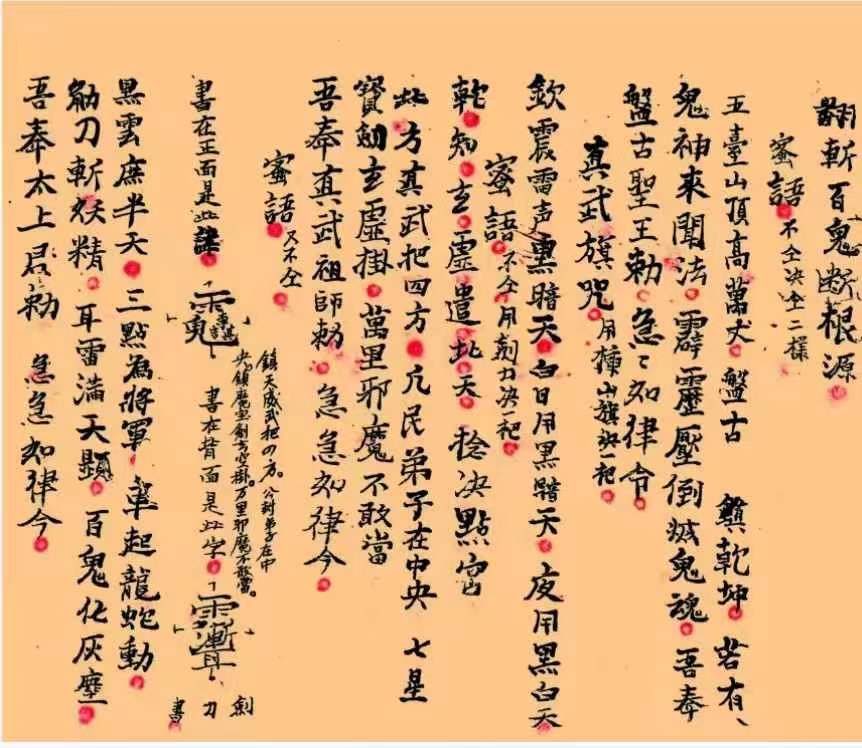 翻斬百鬼断根源。
蜜語。不仝决仝二樣
五臺山頂高萬丈。盤古 鎮乾坤。若有、
鬼神來聞法。霹靂壓倒滅鬼魂。吾奉
盤古聖王勅。急々如律令。
真武旗咒。用山旗决一把。
欽震雷声。黑暗天。白日用黑暗天。夜用黑白天
蜜語。不仝。用剣刀决一把。
乾知玄。虛遣北天。捻决點宮
此方真武把四方。凡民弟子在中央 七星
寶劍玄虛掛。萬里邪魔不敢當
吾奉真武祖師勅。急急如律今。
蜜語。又不仝。
鎮天威武把四方。公封弟子在中
央。鎮魔宝剣玄空掛。万里邪魔不敢當。
書在正面是此諱。 書在背面是此字。 剣刀書
黑雲庶半天。三點為將軍。車起龍蛇動。
劒刀斬妖精。耳雷满天顕。百鬼化灰塵。
吾奉太上君勅 急急如律今。